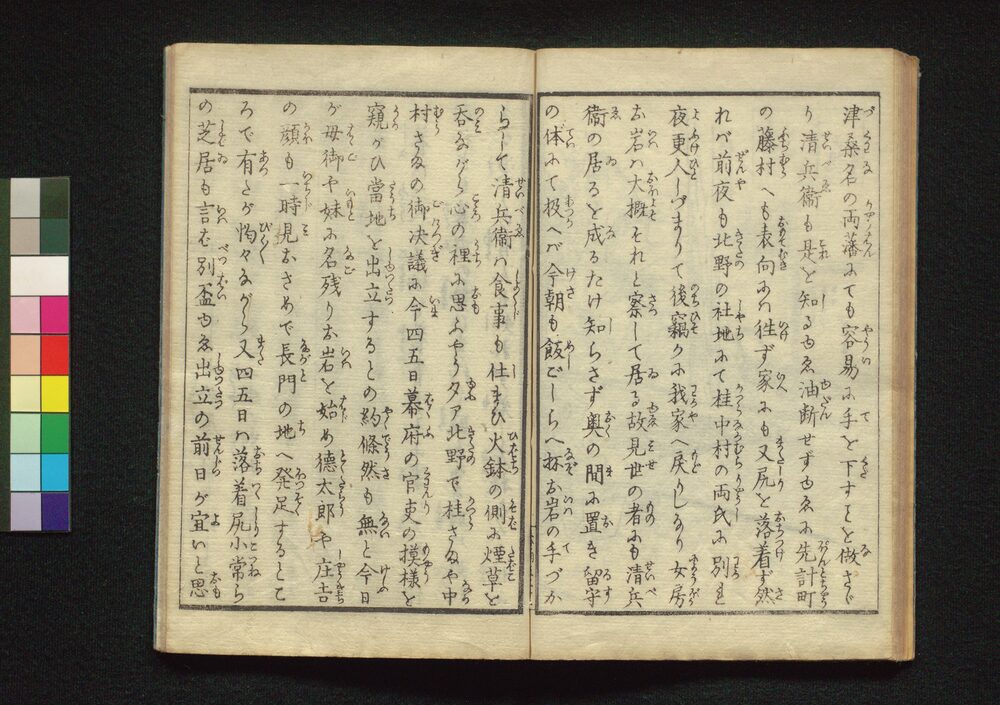 津桑名の両藩にても容易に手を下すことを做さゞ
り清兵衛も是を知るゆゑ油断せずゆゑに先斗町
の藤村へも表向には徃ず家にも又尻を落着ず然
れバ前夜も北野の社地にて桂中村の両氏に別れ
夜更人しづまりて後竊かに我家へ戻りしなり女房
お岩ハ大概それと察して居る故見世の者にも清兵
衛の居るを成るたけ知らさず奥の間に置き留守
の体にて扱へバ今朝も飯ごしらへ抔お岩の手づか
らして清兵衛ハ食事も仕まひ火鉢の側に煙草を
呑ながら心の裡に思ふやう夕ア北野で桂さぬや中
村さぬの御决議に今四五日幕府の官吏の摸様を
窺がひ當地を出立するとの約條然も無と今日
が母御や妹に名残りお岩を始め徳太郎や庄吉
の顔も一時見おさめで長門の地へ発足するとこ
ろで有たが恟々ながら又四五日ハ落着尻小常ら
の芝居も言は別盃ゆゑ出立の前日が宜いと思